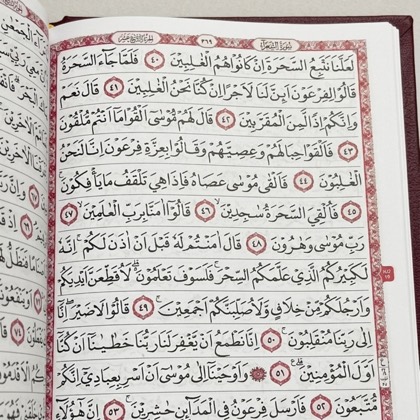 الجزء التاسع عشر ٣٦٩ سورة الشعراء
لعلنا نتبع السحرة ان كانوا هم الغالبين ٤٠ فلما جاء السحرة
قالوا لفرعون ائن لنا لاجرا ان كنا نحن الغالبين ٤١ قال نعم
وانكم اذا لمن المقربين ٤٢ قال لهم موسى القوا ما انتم ملقون
٤٣ فالقوا حبالهم وعصيهم وقالوا بعزة فرعون انا لنحن
الغالبون ٤٤ فالقى موسى عصاه فاذا هي تلقف ما يافكون
٤٥ فالقي السحرة ساجدين ٤٦ قالوا امنا برب العالمين ٤٧
رب موسى وهرون ٤٨ قال امنتم له قبل ان اذن لكم انه
لكبيركم الذي علمكم السحر فلسوف تعلمون لاقطعن ايديكم
وارجلكم من خلاف ولاصلبنكم اجمعين ٤٩ قالوا لا ضير انا
الى ربنا منقلبون ٥٠ انا نطمع ان يغفر لنا ربنا خطايانا ان كنا
اول المؤمنين ٥١ واوحينا الى موسى ان اسر بعبادي انكم
متبعون ٥٢ فارسل فرعون في المدائن حاشرين ٥٣ ان هؤلاء